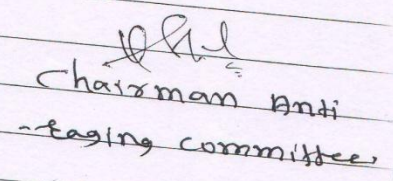 Chairman Anti
-raging committee,